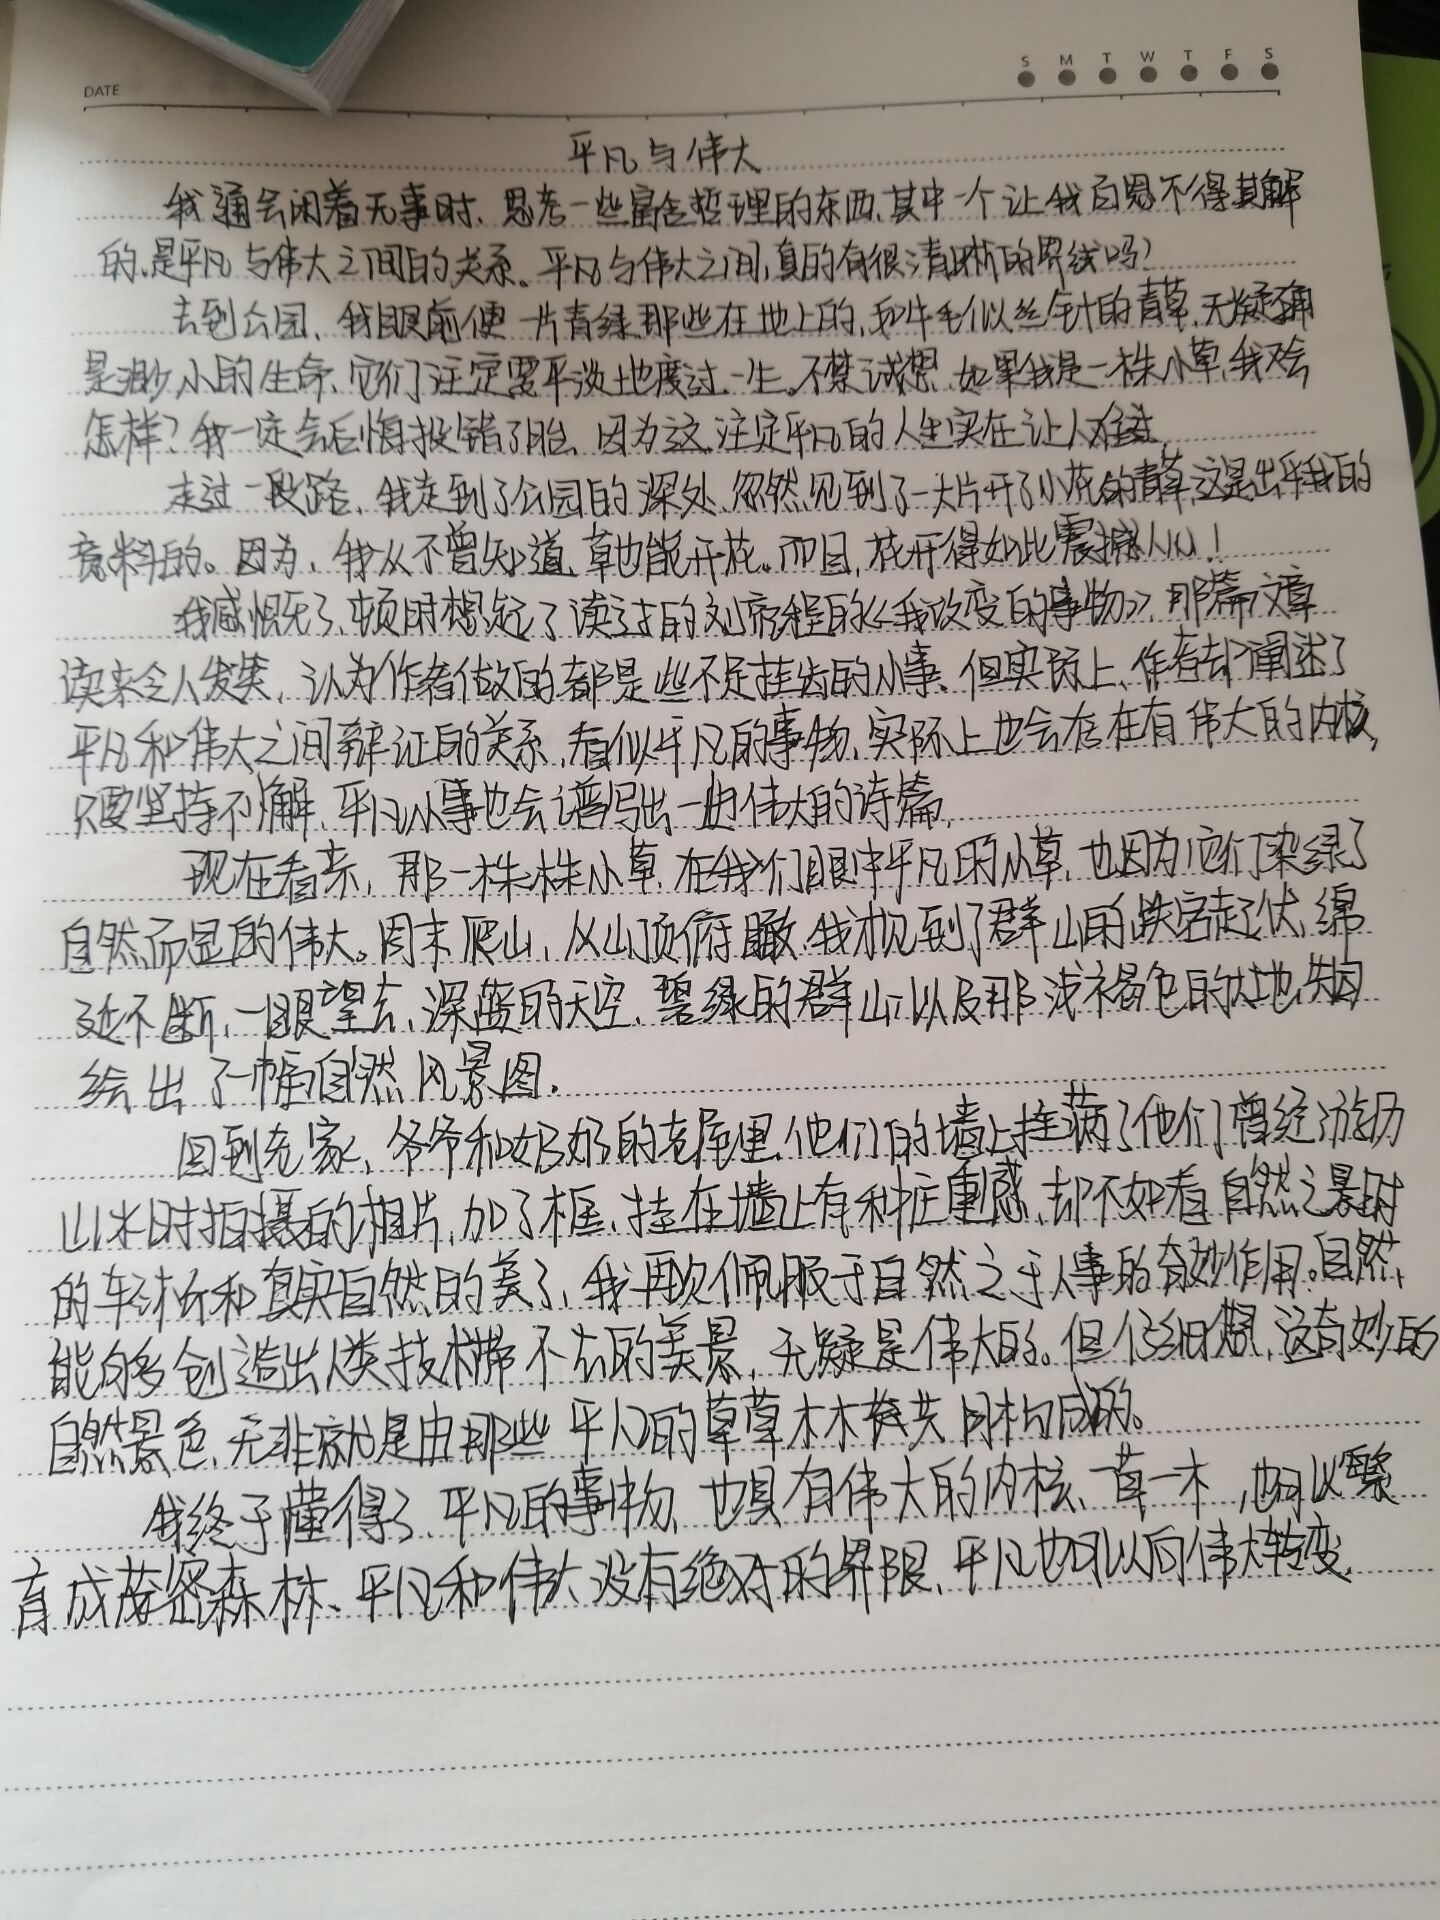 DATE
S M T W T F S
平凡与伟大
我通会闲着无事时、思考一些富含哲理的东西、其中一个让我百思不得其解
的、是平凡与伟大之间的关系。平凡与伟大之间,真的有很清晰的界线吗?
去到公园、我眼前便一片青绿、那些在地上的、和牛毛似丝针的青草、无疑
是渺小的生命、它们注定要平淡地度过一生。不禁试想、如果我是一株小草、我会
怎样?我一定会后悔投错了胎、因为这注定平凡的人生实在让人难过。
走过一段路、我走到了公园的深处、忽然见到了一大片开了小花的青草、这是出乎我的
意料的。因为、我从不曾知道、草也能开花。而且、花开得如此震撼人心!
我感慨死了、顿时想起了读过的刘的《我改变的事物》、那篇文章
读来令人发笑、认为作者做的都是些不足挂齿的小事、但实际上、作者却阐述了
平凡和伟大之间辩证的关系、看似平凡的事物、实际上也会存在有伟大的内核,
只要坚持不懈、平凡从事也会谱写出一曲伟大的诗篇。
现在看来、那一株株小草、在我们眼中平凡的小草、也因为它们染绿了
自然而显的伟大。周末爬山、从山顶俯瞰、我才见到了群山的跌宕起伏、绵
延不断、一眼望去、深蓝的天空、碧绿的群山、以及那浅褐色的大地、
绘出了一幅自然风景图。
回到老家、爷爷和奶奶的老屋里、他们的墙上挂满了他们曾经游历
山水时拍摄的相片、加了框、挂在墙上有种庄重感、却不如看自然之景时
的和真实自然的美了、我再次佩服于自然之于人事的奇妙作用。自然、
能够创造出人类技术带不去的美景、无疑是伟大的。但仔细想、这奇妙的
自然景色、无非就是由那些平凡的草草木木共同构成的。
我终于懂得了、平凡的事物、也具有伟大的内核、一草一木、也可以繁
育成茂密森林、平凡和伟大没有绝对的界限、平凡也可以向伟大转变。